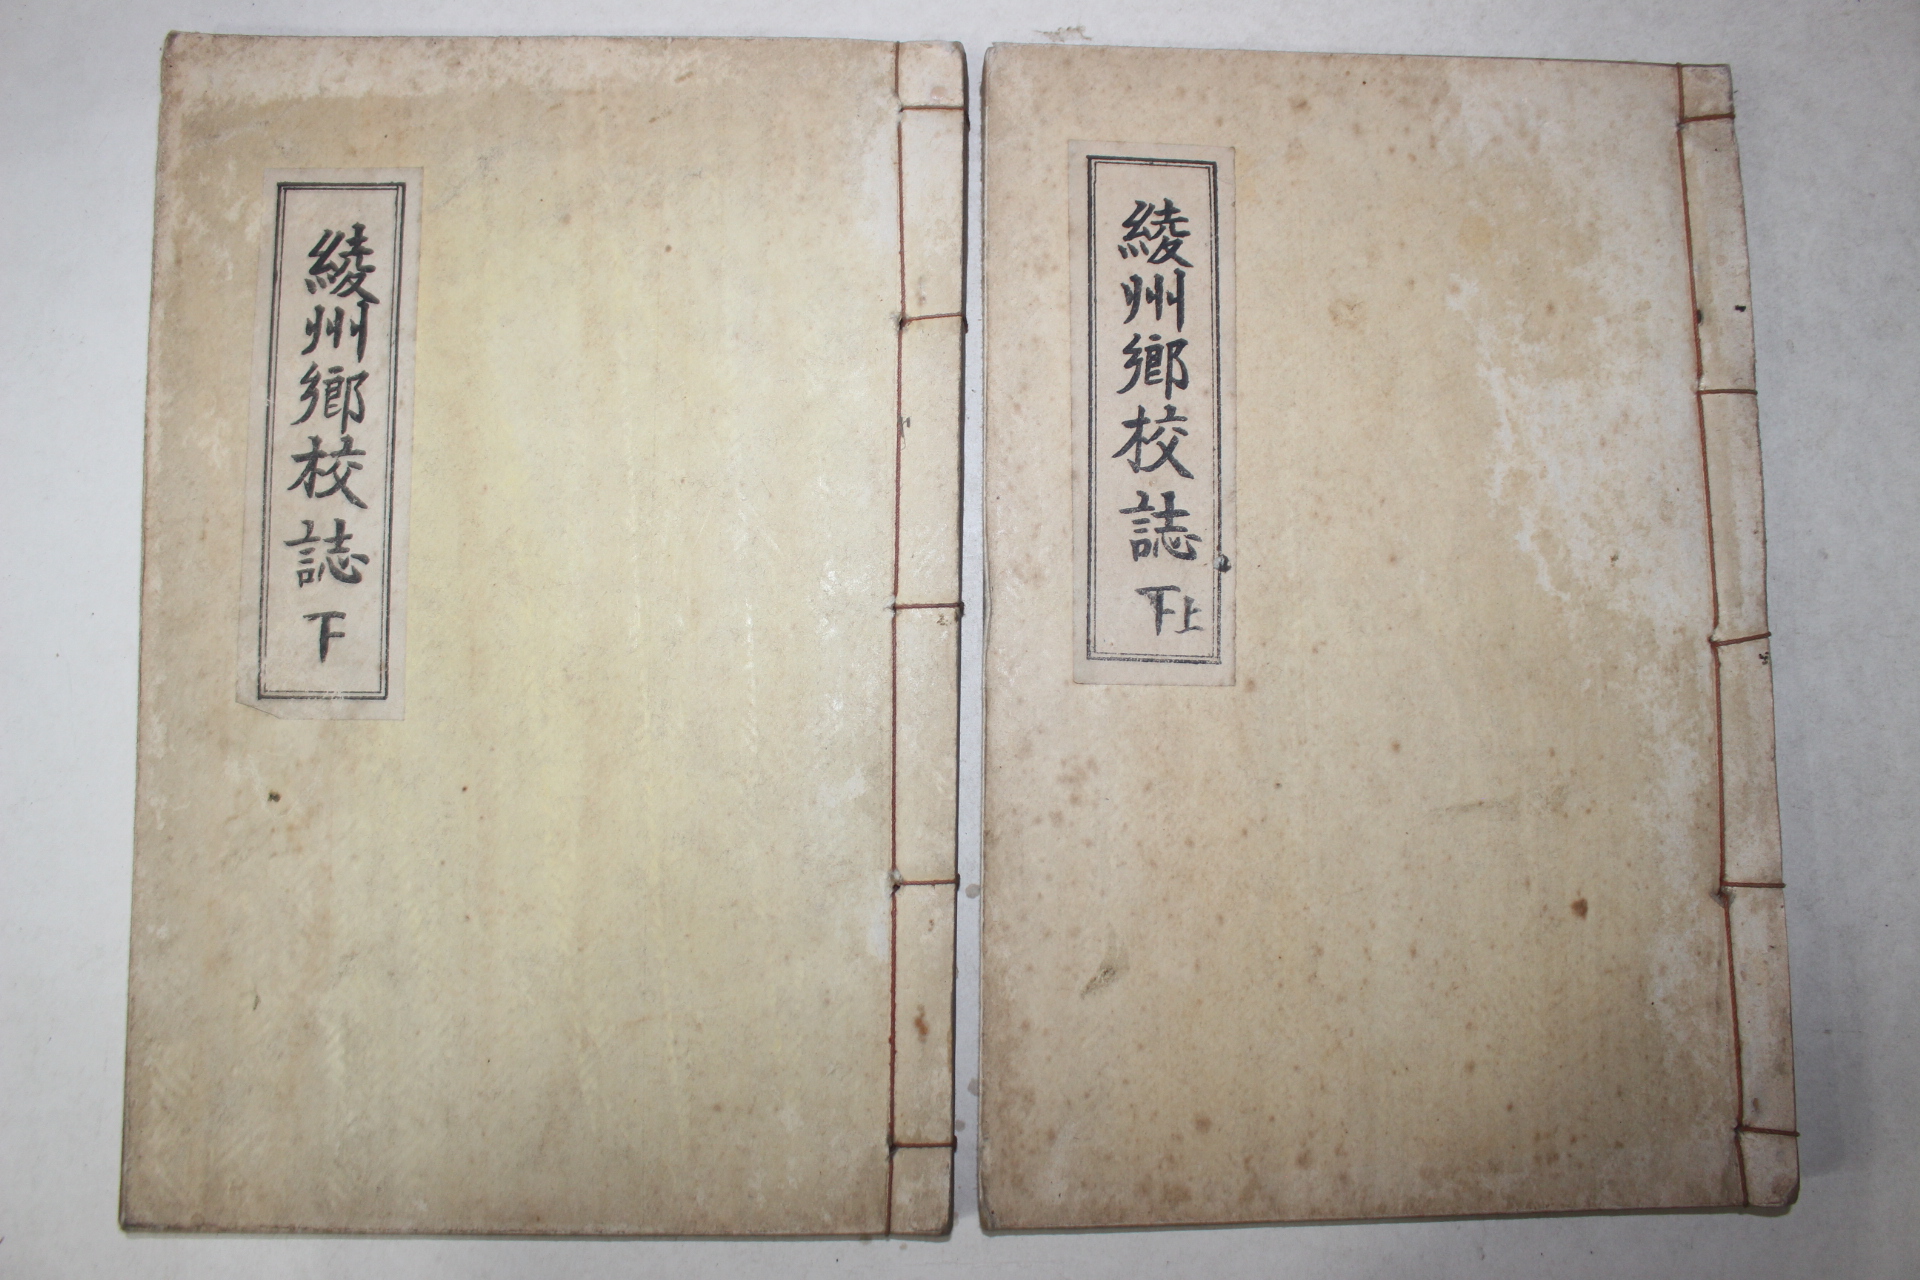 綾州鄉校誌 下上
綾州鄉校誌 下